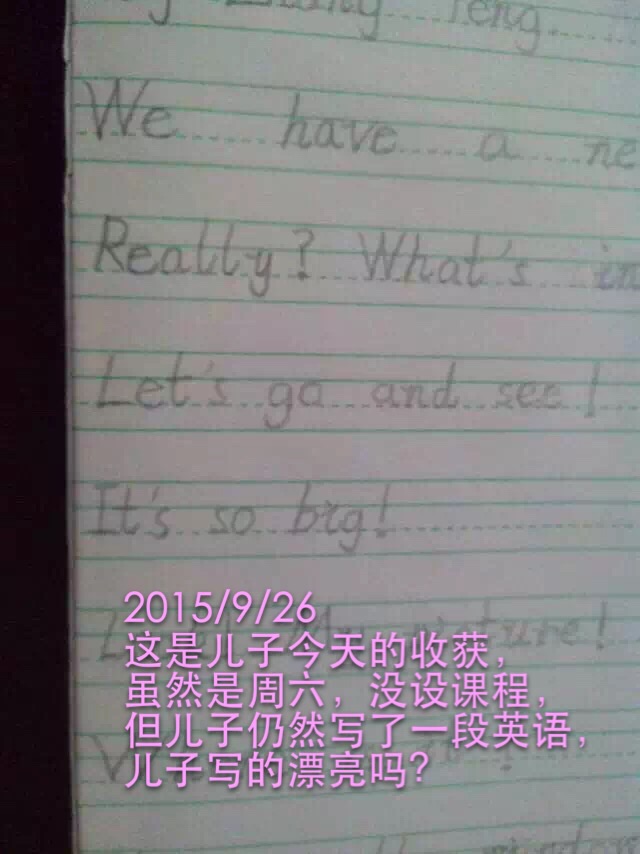 Peng.
We have a ne
Really? What's in
Let's go and see!
It's so big!
My picture!
2015/9/26
这是儿子今天的收获，
虽然是周六，没设课程，
但儿子仍然写了一段英语，
儿子写的漂亮吗？